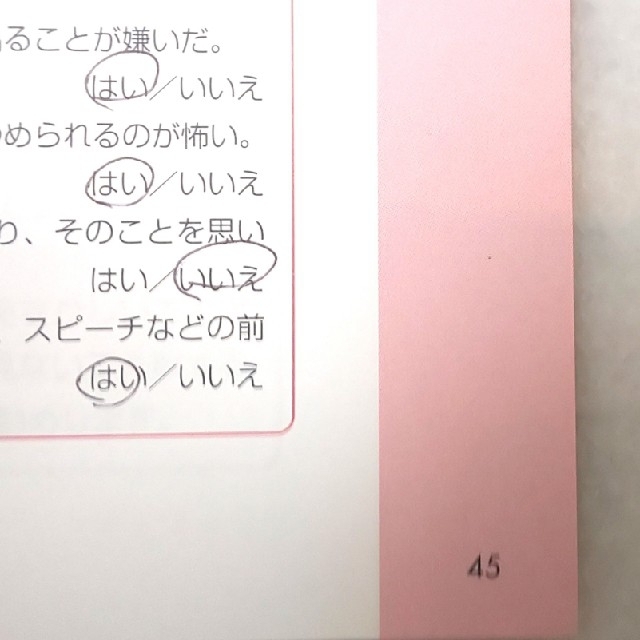 ることが嫌いだ。
はい／いいえ
められるのが怖い。
はい／いいえ
り、そのことを思い
はい／いいえ
スピーチなどの前
はい／いいえ
45